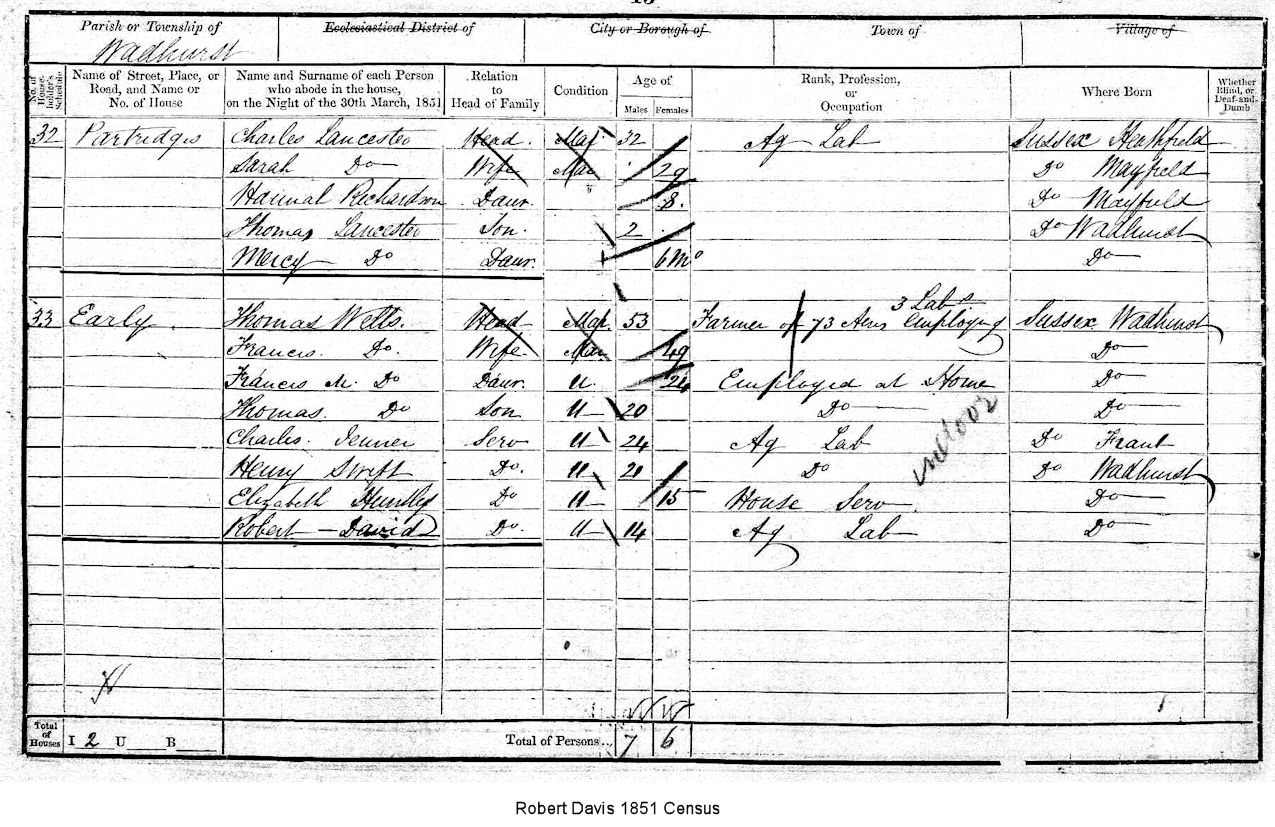 Parish or Township of Ecclesiastical District of City or Borough of Town of Village of
Wadhurst
No. of House-holder's Schedule Name of Street, Place, or Road, and Name or No. of House Name and Surname of each Person who abode in the house, on the Night of the 30th March, 1851 Relation to Head of Family Condition Age of Males Females Rank, Profession, or Occupation Where Born Whether Blind, or Deaf-and-Dumb
32 Partridges Charles Lancester Head Mar 32 Ag Lab Sussex Heathfield
Sarah Do Wife Mar 29 Do Mayfield
Hannah Richardson Daur. 8 Do Mayfield
Thomas Lancester Son 2 Do Wadhurst
Mercy Do Daur. 6 Mo Do
33 Early Thomas Wells Head Mar 53 Farmer of 73 Acres Employing 3 Labs Sussex Wadhurst
Frances Do Wife Mar 49 Do
Frances M. Do Daur. U 24 Employed at Home Do
Thomas Do Son U 20 Do Do
Charles Jenner Serv U 24 Ag Lab Do Frant
indoor
Henry Swift Do U 21 Do Do Wadhurst
Elizabeth U 15 House Serv Do
Robert David Do U 14 Ag Lab Do
Total of Houses I 2 U B Total of Persons... 7 6
Robert Davis 1851 Census